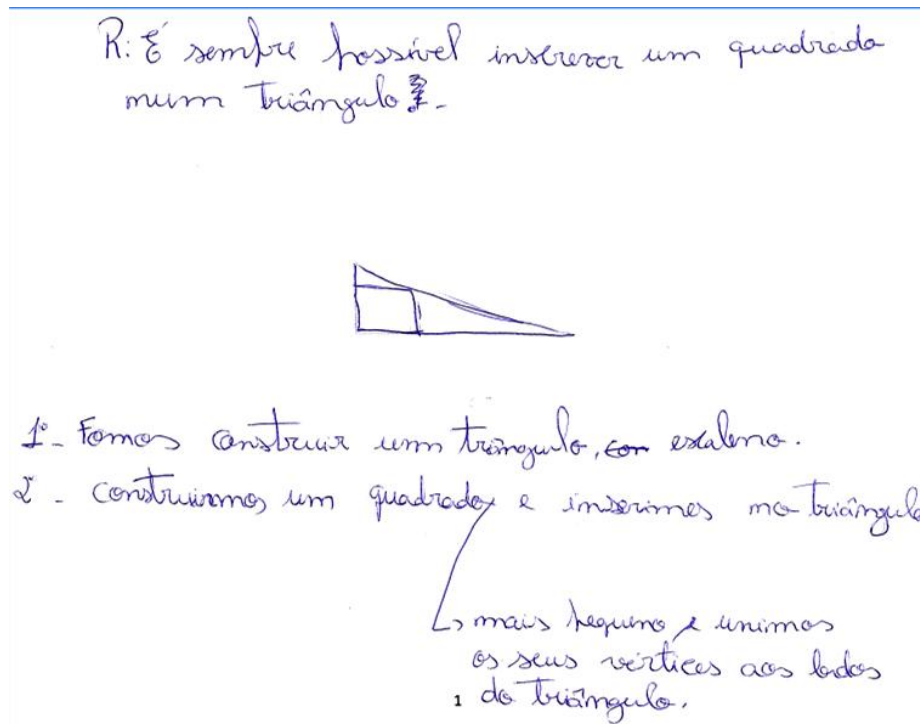 R: É sempre possível inscrever um quadrado
num triângulo.
1º - Fomos construir um triângulo, con escaleno.
2º - Construirmos um quadrado e inserimos no triângulo
↳ mais pequeno e unimos
os seus vértices aos lados
1 do triângulo.